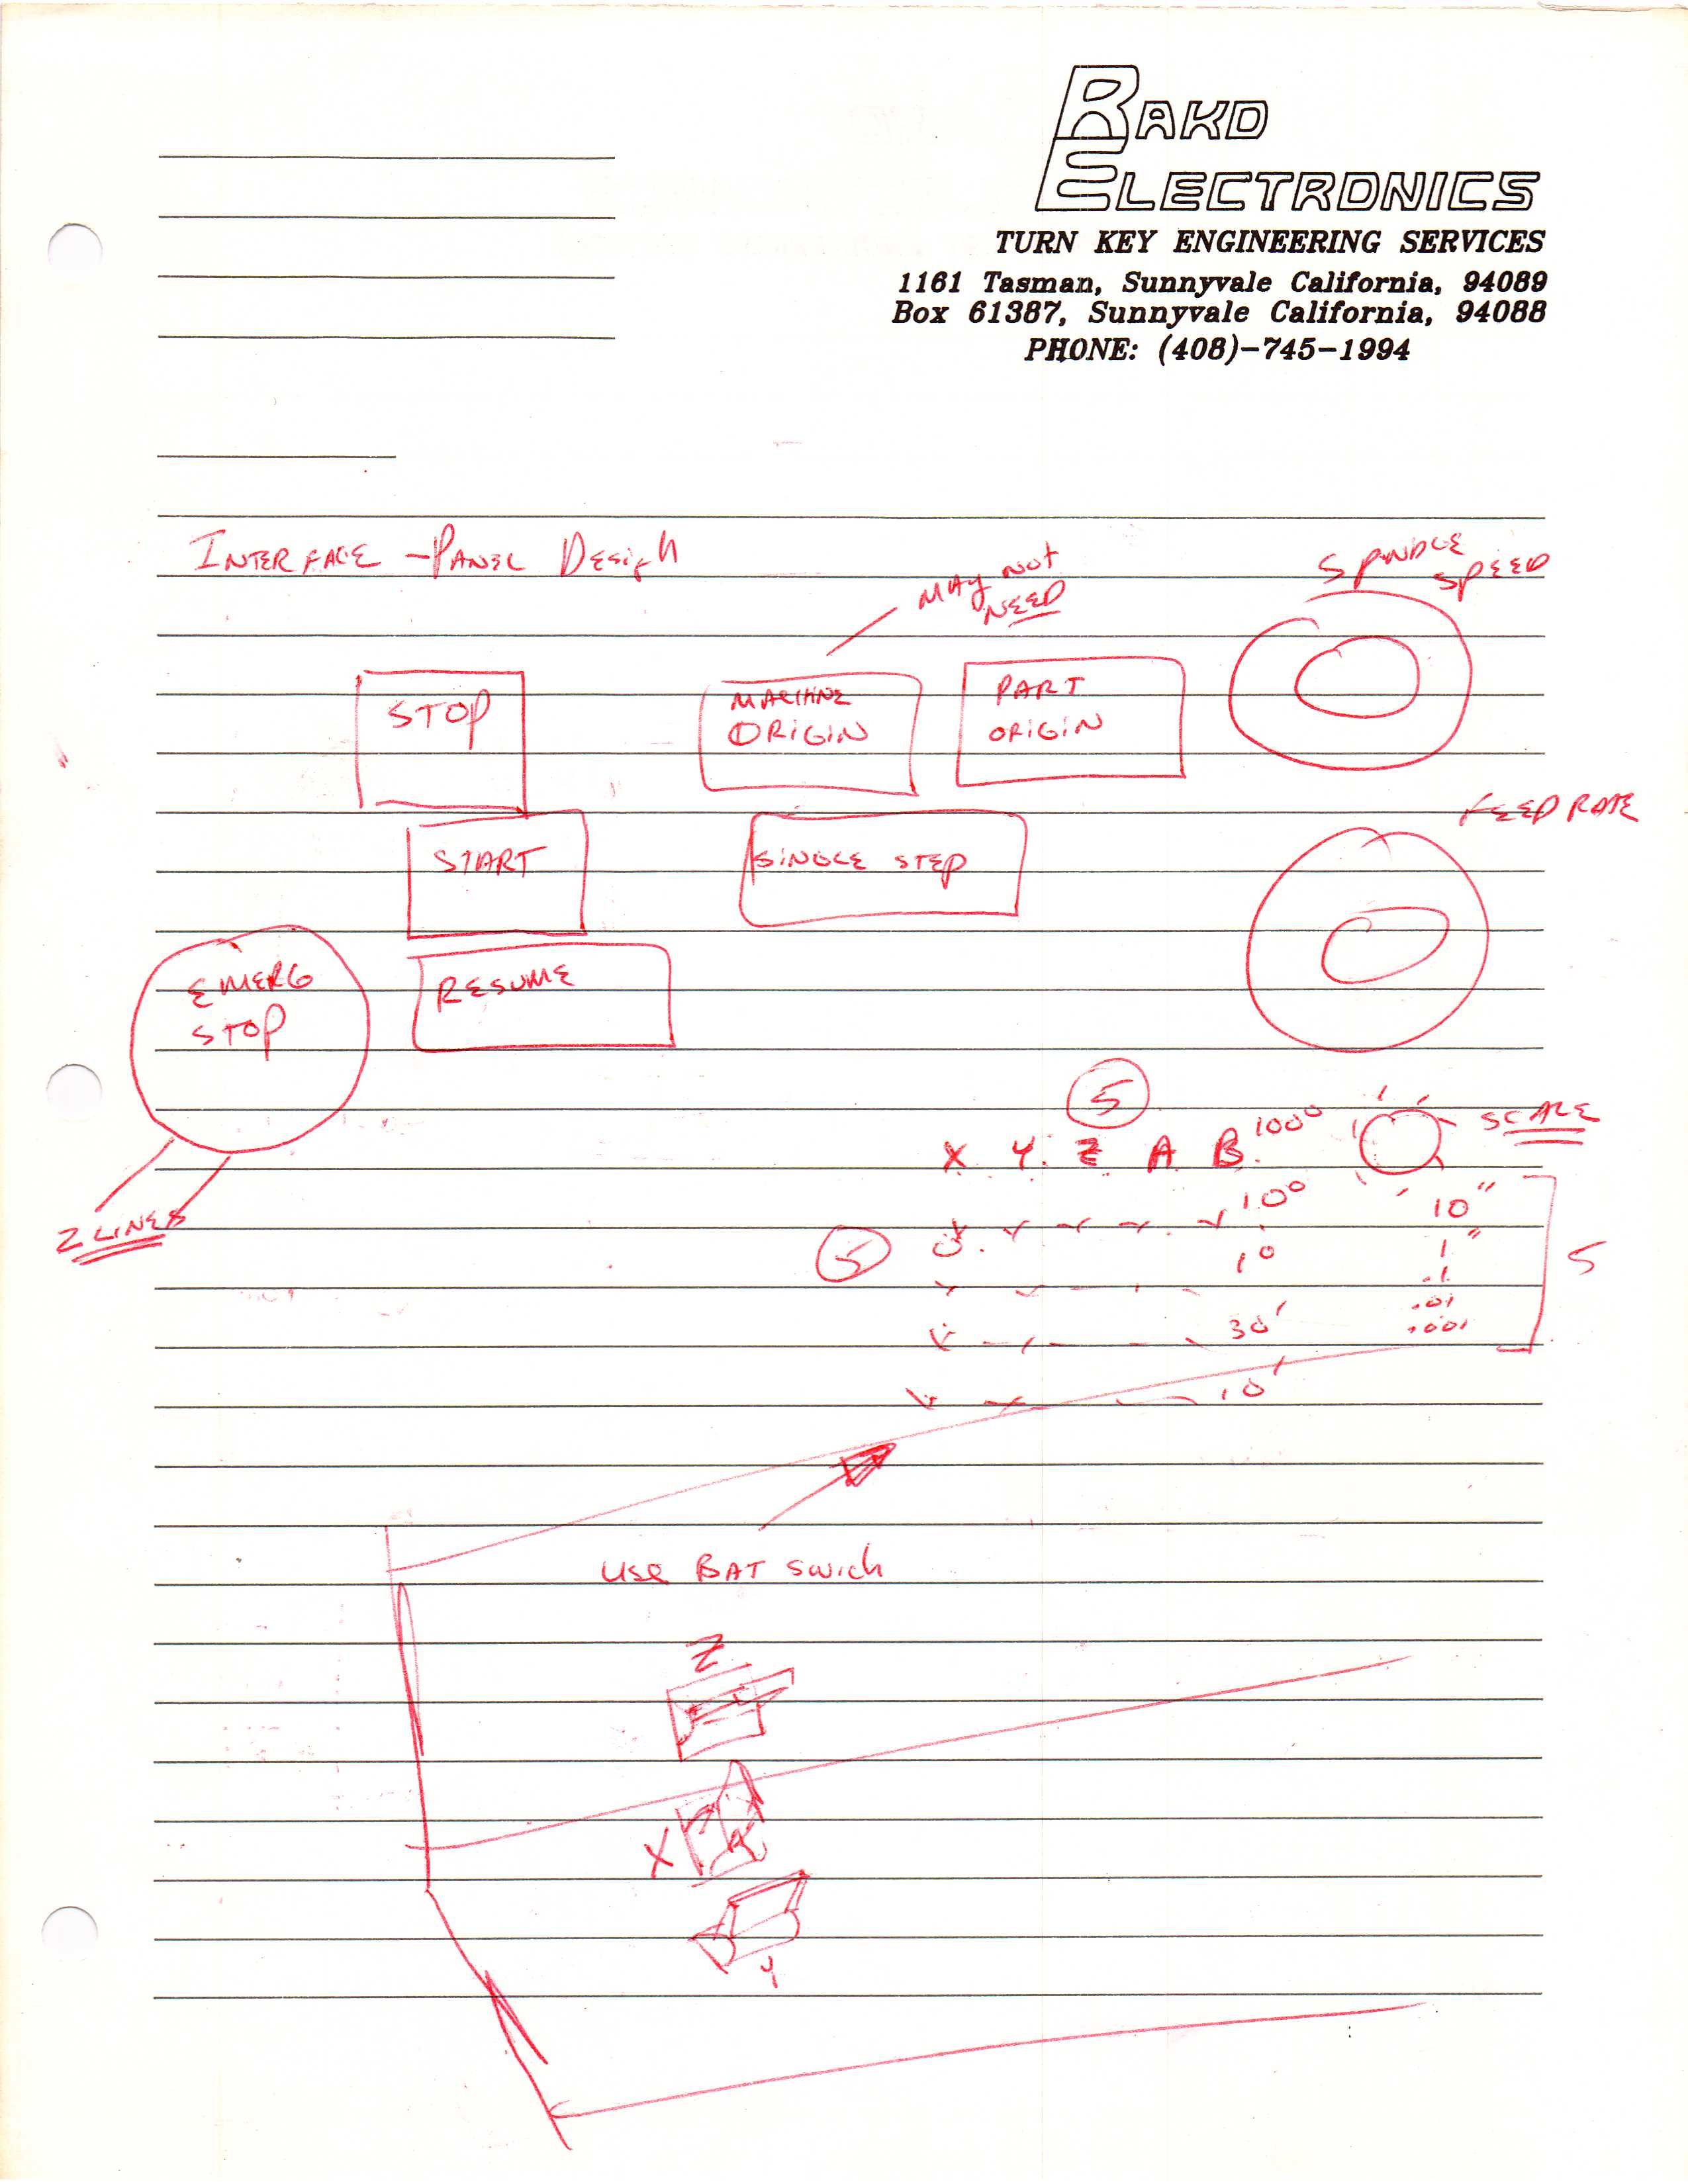 RAKO
ELECTRONICS
TURN KEY ENGINEERING SERVICES
1161 Tasman, Sunnyvale California, 94089
Box 61387, Sunnyvale California, 94088
PHONE: (408)-745-1994
INTERFACE - PANEL DESIGN
MAY NOT
NEED
SPINDLE
SPEED
STOP
MACHINE
ORIGIN
PART
ORIGIN
FEED RATE
START
SINGLE STEP
EMERG
STOP
RESUME
5
X Y Z A B 100° SCALE
10° 10"
2 LINES
5
1° 1" 5
.1
30' .01
.001
10'
Use BAT swich
Z
X
Y